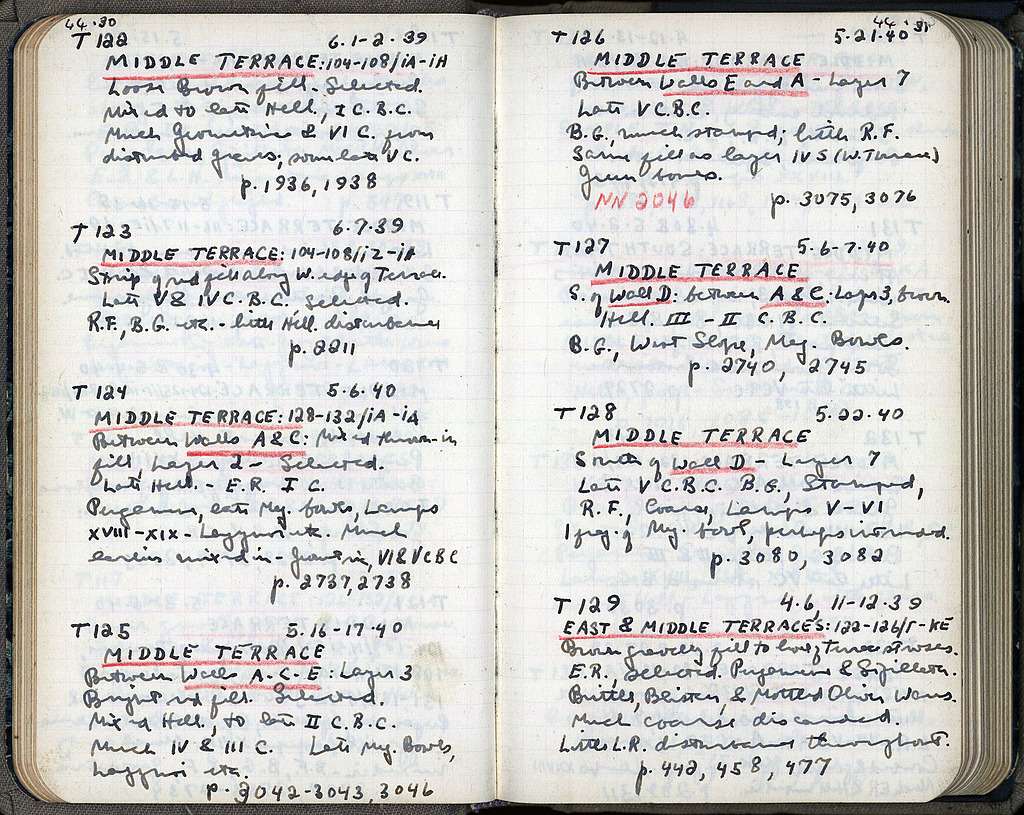 44.30
T 122 6.1-2.39
MIDDLE TERRACE: 104-108/iA-iH
Loose Brown fill. Selected.
Mixed to late Hell., I C.B.C.
Much Geometric & VI C. from
disturbed graves; some late V C.
p. 1936, 1938
T 123 6.7.39
MIDDLE TERRACE: 104-108/iZ-iH
Strip of red fill along W. edge of Terrace.
Late V & IV C. B.C. Selected.
R.F., B.G. etc. - little Hell. disturbance
p. 2211
T 124 5.6.40
MIDDLE TERRACE: 128-132/iA-iA
Between Walls A & C: Mixed thrown in
fill Layer 2 - Selected.
Late Hell. - E.R. I C.
Pergamene, late Meg. bowls, Lamps
XVIII-XIX - Lagynoi etc. Much
earlier mixed in - Geometric, VI & V C BC
p. 2737, 2738
T 125 5.16-17.40
MIDDLE TERRACE
Between Walls A-C-E: Layer 3
Bright red fill. Selected.
Mixed Hell., to late II C. B.C.
Much IV & III C. Late Meg. Bowls,
Lagynoi etc.
p. 3042-3043, 3046
44.31
T 126 5.21.40
MIDDLE TERRACE
Between Walls E and A - Layer 7
Late V C. B.C.
B.G., much stamped; little R.F.
Same fill as layer IV S (W. Trench)
Green bones.
NN 2046 p. 3075, 3076
T 127 5.6-7.40
MIDDLE TERRACE
S. of Wall D: between A & C: Layer 3, brown
Hell. III - II C. B.C.
B.G., West Slope, Meg. Bowls.
p. 2740, 2745
T 128 5.22.40
MIDDLE TERRACE
South of Wall D - Layer 7
Late V C. B.C. B.G., Stamped,
R.F., Coarse, Lamps V-VI
1 frag. of Meg. bowl, perhaps intrused.
p. 3080, 3082
T 129 4.6, 11-12.39
EAST & MIDDLE TERRACES: 122-126/Γ-KE
Brown gravelly fill to
E.R., Selected. Pergamene & Sigillata.
Brittle, Blister, & Mottled Olive Wares.
Much coarse discarded.
Little L.R. disturbance throughout.
p. 442, 458, 477